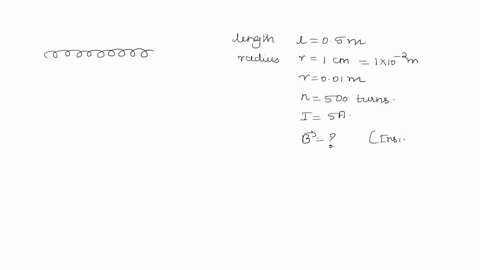 length l = 0.5 m
radius r = 1 cm = 1×10⁻² m
r = 0.01 m
n = 500 turns.
I = 5A.
B⃗ = ? [Insi